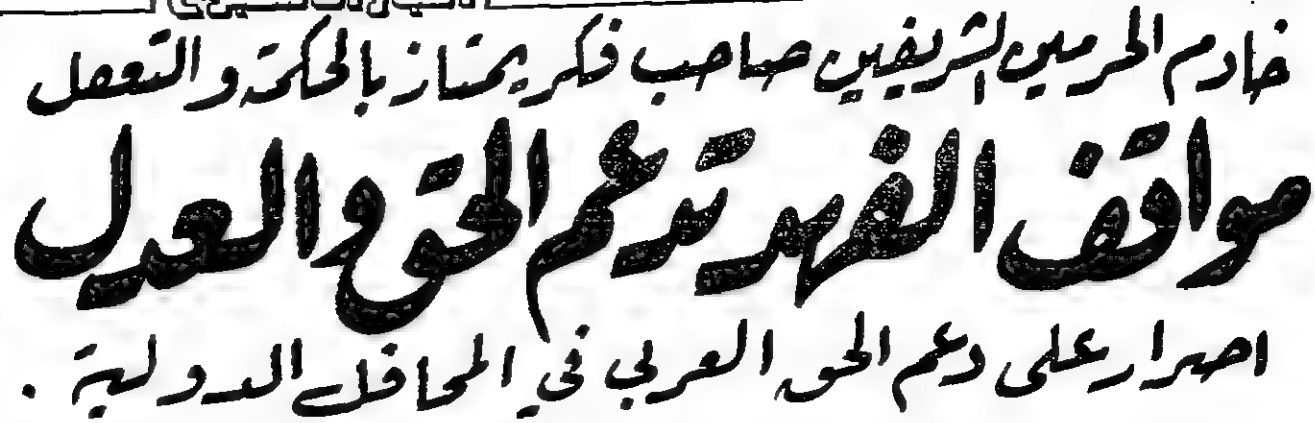 خادم الحرمين الشريفين صاحب فكر يمتاز بالحكمة والتعقل
مواقف الفهد تدعم الحق والعدل
اصرار على دعم الحق العربي في المحافل الدولية .